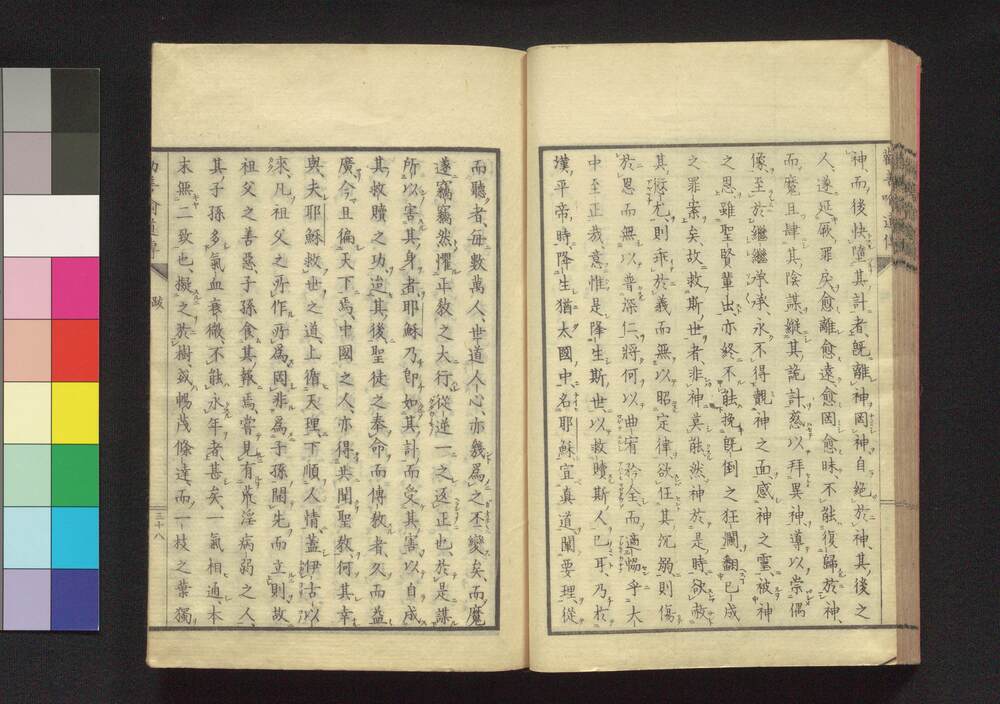 神、而後快墮其計者、既離神罔神、自絕於神、其後之
人、遂延厥罪戾、愈離愈遠、愈罔愈昧、不能復歸於神、
而魔且肆其陰謀、縱其詭計、惹以拜異神、導以崇偶
像、至於繼繼承承、永不得覿神之面、感神之靈、被神
之恩、雖聖賢輩出、亦終不能挽既倒之狂瀾、翻已成
之罪案矣、故救斯世者、非神莫能、然神於是時、欲赦
其愆尤、則乖於義、而無以昭定律、欲任其沉溺、則傷
於恩、而無以普深仁、將何以曲宥矜全、而適愜乎大
中至正哉、意惟是降生斯世、以救贖斯人已耳、乃於
漢平帝時、降生猶太國中、名耶穌、宣真道、闡要理、從
而聽者、每數萬人、世道人心、亦幾為之丕變矣、而魔
遂竊竊然、懼正教之大行、從逆一之返正也、於是謀
所以害其身者、耶穌乃卽如其計、而受其害、以自成
其救贖之功、迨其後聖徒之奉命而傳教者、久而益
廣、今且徧天下焉、中國之人、亦得共聞聖教、何其幸
與、夫耶穌救世之道、上循天理、下順人情、蓋伊古以
來、凡祖父之所作所為、罔非為子孫開先而立則、故
祖父之善惡、子孫食其報焉、嘗見有荒淫病弱之人、
其子孫多氣血衰微、不能永年者、甚矣、一氣相通、本
末無二致也、擬之於樹、或暢茂條達、而一枝之葉獨
跋
三十八